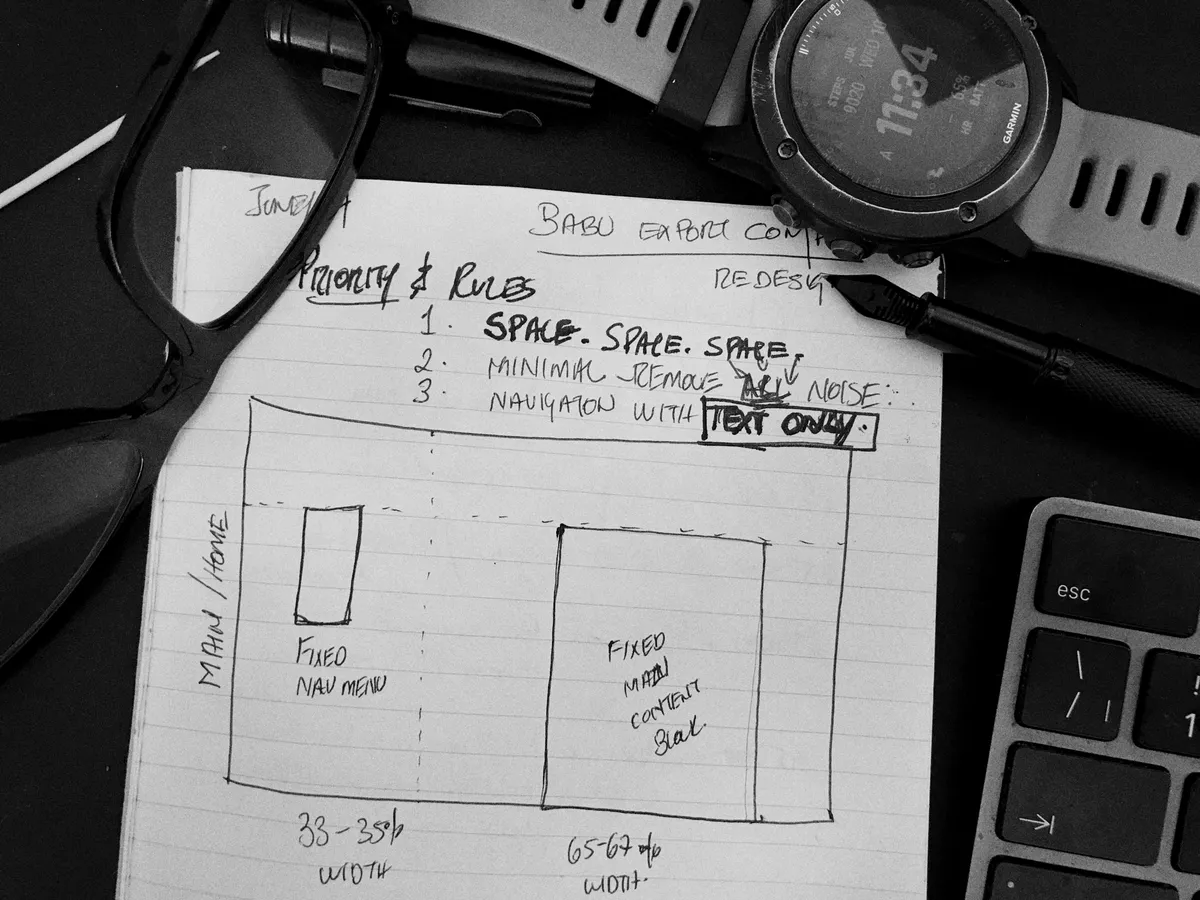 BABU EXPORT
REDESIG
PRIORITY & RULES
1. SPACE. SPACE. SPACE.
2. MINIMAL REMOVE ALL NOISE:
3 NAVIGATON WITH TEXT ONLY.
MAIN / HOME
FIXED
NAV MENU
FIXED
MAIN
CONTENT
33-35%
WIDTH
65-67%
WIDTH.
STEPS
9030
JUL
WED
11:34
A
HR
BATT
GARMIN
esc
\
/ |
!
1